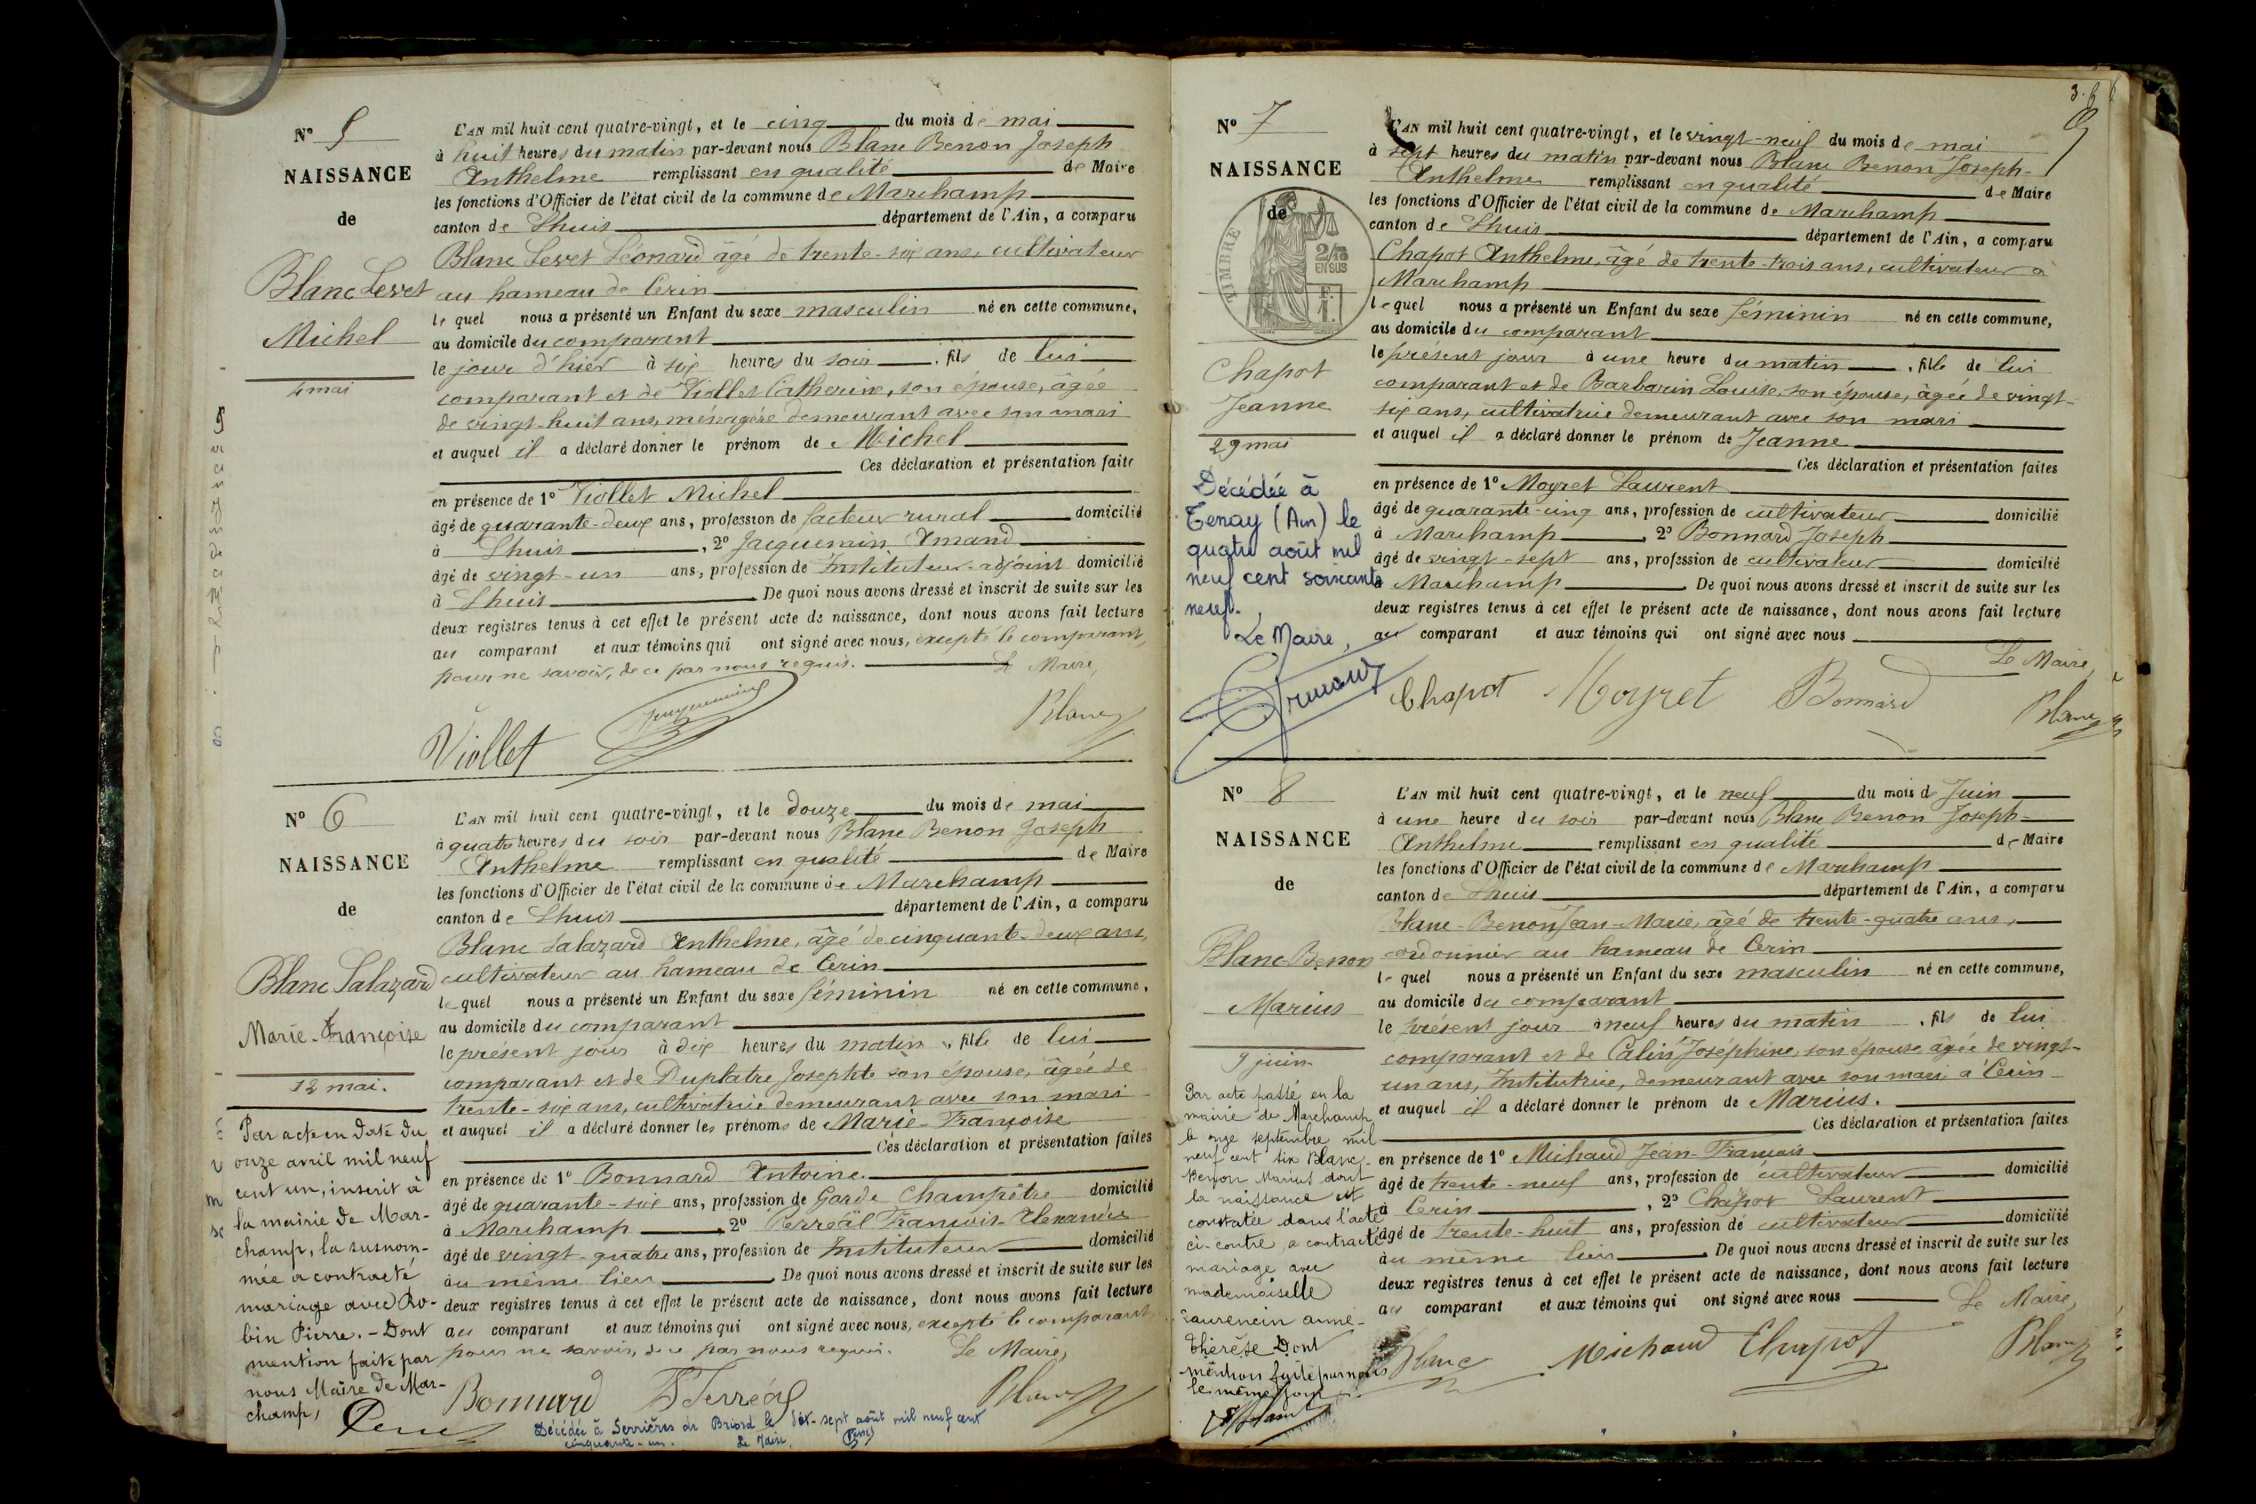 Nº 5
NAISSANCE
de
Blanc Levet
Michel
4 mai
L'AN mil huit cent quatre-vingt, et le cinq du mois de mai
à huit heures du matin par-devant nous Blanc Benon Joseph
Anthelme remplissant en qualité de Maire
les fonctions d'Officier de l'état civil de la commune de Marchamp
canton de Lhuis département de l'Ain, a comparu
Blanc Levet Léonard âgé de trente-six ans, cultivateur
au hameau de Cerin
lequel nous a présenté un Enfant du sexe masculin né en cette commune,
au domicile du comparant
le jour d'hier à six heures du soir, fils de lui
comparant et de Viollet Catherine, son épouse, âgée
de vingt-huit ans, ménagère demeurant avec son mari
et auquel il a déclaré donner le prénom de Michel
Ces déclaration et présentation faites
en présence de 1º Viollet Michel
âgé de quarante-deux ans, profession de facteur rural domicilié
à Lhuis, 2º Jacquemin Amand
âgé de vingt-un ans, profession de Instituteur-adjoint domicilié
à Lhuis De quoi nous avons dressé et inscrit de suite sur les
deux registres tenus à cet effet le présent acte de naissance, dont nous avons fait lecture
au comparant et aux témoins qui ont signé avec nous, excepté le comparant,
pour ne savoir, de ce par nous requis. Le Maire,
Viollet Jacquemin Blanc
Nº 6
NAISSANCE
de
Blanc Salazard
Marie-Françoise
12 mai.
Par acte en date du
onze avril mil neuf
cent un, inscrit à
la mairie de Mar-
champ, la susnom-
mée a contracté
mariage avec Ro-
bin Pierre. - Dont
mention faite par
nous Maire de Mar-
champ,
L'AN mil huit cent quatre-vingt, et le douze du mois de mai
à quatre heures du soir par-devant nous Blanc Benon Joseph
Anthelme remplissant en qualité de Maire
les fonctions d'Officier de l'état civil de la commune de Marchamp
canton de Lhuis département de l'Ain, a comparu
Blanc Salazard Anthelme, âgé de cinquante-deux ans,
cultivateur au hameau de Cerin
lequel nous a présenté un Enfant du sexe féminin né en cette commune,
au domicile du comparant
le présent jour à dix heures du matin, fille de lui
comparant et de Duplatre Josephte son épouse, âgée de
trente-six ans, cultivatrice demeurant avec son mari
et auquel il a déclaré donner les prénoms de Marie-Françoise
Ces déclaration et présentation faites
en présence de 1º Bonnard Antoine
âgé de quarante-six ans, profession de Garde Champêtre domicilié
à Marchamp, 2º Perréal François-Alexandre
âgé de vingt-quatre ans, profession de Instituteur domicilié
au même lieu De quoi nous avons dressé et inscrit de suite sur les
deux registres tenus à cet effet le présent acte de naissance, dont nous avons fait lecture
au comparant et aux témoins qui ont signé avec nous, excepté le comparant,
pour ne savoir, de ce par nous requis. Le Maire,
Bonnard Perréal Blanc
Décédée à Serrières de Briord le dix-sept août mil neuf cent
cinquante-un. Le Maire,
Nº 7
NAISSANCE
de
TIMBRE
2/10
EN SUS
Chapot
Jeanne
29 mai
Décédée à
Tenay (Ain) le
quatre août mil
neuf cent soixante
neuf.
Le Maire,
L'AN mil huit cent quatre-vingt, et le vingt-neuf du mois de mai
à sept heures du matin par-devant nous Blanc Benon Joseph-
Anthelme remplissant en qualité de Maire
les fonctions d'Officier de l'état civil de la commune de Marchamp
canton de Lhuis département de l'Ain, a comparu
Chapot Anthelme, âgé de trente-trois ans, cultivateur à
Marchamp
lequel nous a présenté un Enfant du sexe féminin né en cette commune,
au domicile du comparant
le présent jour à une heure du matin, fille de lui
comparant et de Barbarin Louise, son épouse, âgée de vingt-
six ans, cultivatrice demeurant avec son mari
et auquel il a déclaré donner le prénom de Jeanne
Ces déclaration et présentation faites
en présence de 1º Moyret Laurent
âgé de quarante-cinq ans, profession de cultivateur domicilié
à Marchamp, 2º Bonnard Joseph
âgé de vingt-sept ans, profession de cultivateur domicilié
à Marchamp De quoi nous avons dressé et inscrit de suite sur les
deux registres tenus à cet effet le présent acte de naissance, dont nous avons fait lecture
au comparant et aux témoins qui ont signé avec nous
Le Maire,
Chapot Moyret Bonnard Blanc
Nº 8
NAISSANCE
de
Blanc-Benon
Marius
9 juin
Par acte passé en la
mairie de Marchamp
le onze septembre mil
neuf cent six Blanc-
Benon Marius dont
la naissance est
constatée dans l'acte
ci-contre, a contracté
mariage avec
mademoiselle
Laurencin anne-
thérèse Dont
mention faite par nous
le même jour
L'AN mil huit cent quatre-vingt, et le neuf du mois de Juin
à une heure du soir par-devant nous Blanc Benon Joseph-
Anthelme remplissant en qualité de Maire
les fonctions d'Officier de l'état civil de la commune de Marchamp
canton de Lhuis département de l'Ain, a comparu
Blanc-Benon Jean-Marie, âgé de trente-quatre ans,
cordonnier au hameau de Cerin
lequel nous a présenté un Enfant du sexe masculin né en cette commune,
au domicile du comparant
le présent jour à neuf heures du matin, fils de lui
comparant et de Calin Joséphine, son épouse âgée de vingt-
un ans, Institutrice, demeurant avec son mari à Cerin
et auquel il a déclaré donner le prénom de Marius.
Ces déclaration et présentation faites
en présence de 1º Michaud Jean-François
âgé de trente-neuf ans, profession de cultivateur domicilié
à Cerin, 2º Chapot Laurent
âgé de trente-huit ans, profession de cultivateur domicilié
au même lieu De quoi nous avons dressé et inscrit de suite sur les
deux registres tenus à cet effet le présent acte de naissance, dont nous avons fait lecture
au comparant et aux témoins qui ont signé avec nous Le Maire,
Blanc Michaud Chapot Blanc